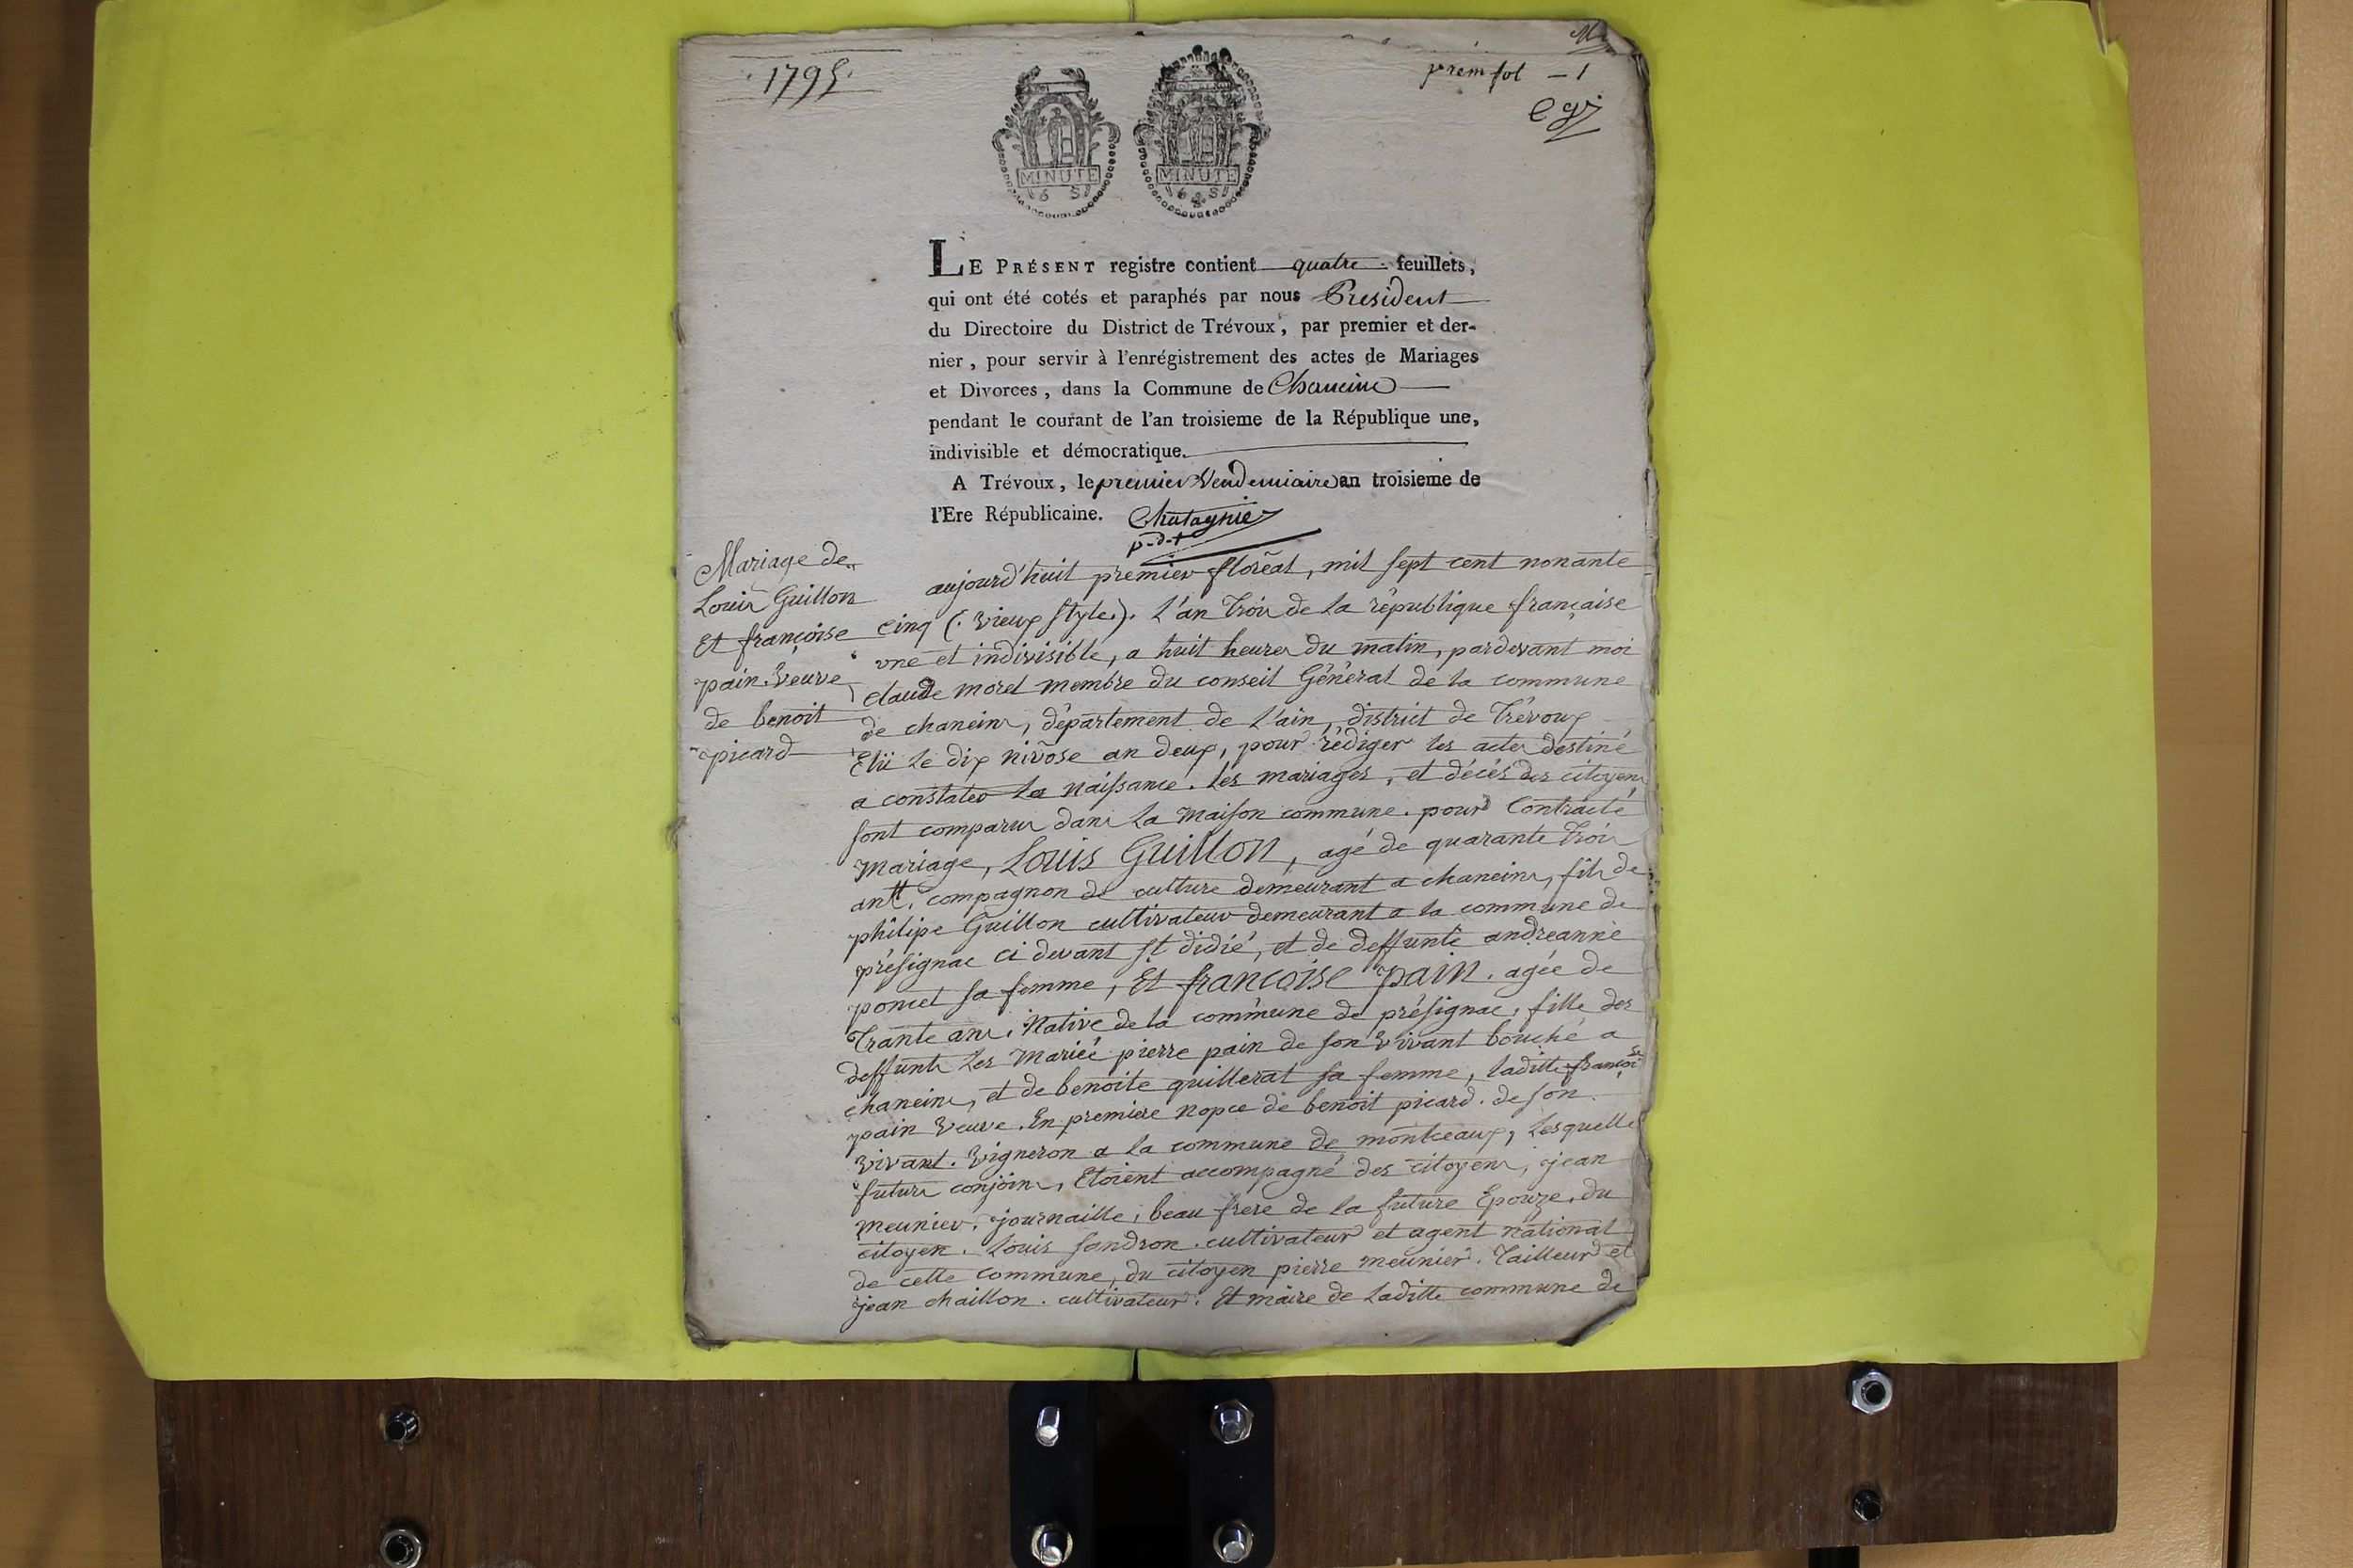 1795.
M
prem fol - 1
MINUTE
6 S
MINUTE
6 S
LE PRÉSENT registre contient quatre feuillets,
qui ont été cotés et paraphés par nous President
du Directoire du District de Trévoux, par premier et der-
nier, pour servir à l'enrégistrement des actes de Mariages
et Divorces, dans la Commune de Chaneins
pendant le courant de l'an troisieme de la République une,
indivisible et démocratique.
A Trévoux, le premier Vendemiaire an troisieme de
l'Ere Républicaine. Chatagnié
p-d-t
Mariage de
Louis Guillon
Et françoise
pain. Veuve
de benoit
picard
aujourd'huit premier floréal, mil sept cent nonante
cinq (. vieux style.). L'an trois de la république française
une et indivisible, a huit heures du matin, pardevant moi
claude morel membre du conseil Général de la commune
de chaneins, département de L'ain, district de Trévoux
Elü le dix nivôse an deux, pour rédiger les actes destiné
a constater la naissance. les mariages, et décés des citoyens
sont comparus dans la maison commune. pour Contracté
mariage, Louis Guillon, agé de quarante trois
ans. compagnon de culture demeurant a chaneins, fils de
philipe Guillon cultivateur demeurant a la commune de
présignac ci devant st didié, et de deffunte andreanne
poncet sa femme, Et francoise pain. agée de
Trante ans. Native de la commune de présignac, fille des
deffunts Les Mariée pierre pain de son vivant bouché a
chaneins, et de benoite guillerat sa femme, laditte françoise
pain Veuve. En premiere nopce de benoit picard. de son
vivant. Vigneron a la commune de montceaux, Lesquelles
futurs conjoins, Etoient accompagné des citoyens, jean
meunier. journaille, beau frere de la future Epouze. du
citoyen. Louis sandron. cultivateur et agent national
de cette commune, du citoyen pierre meunier. Tailleur et
jean chaillon. cultivateur. Et maire de Laditte commune de